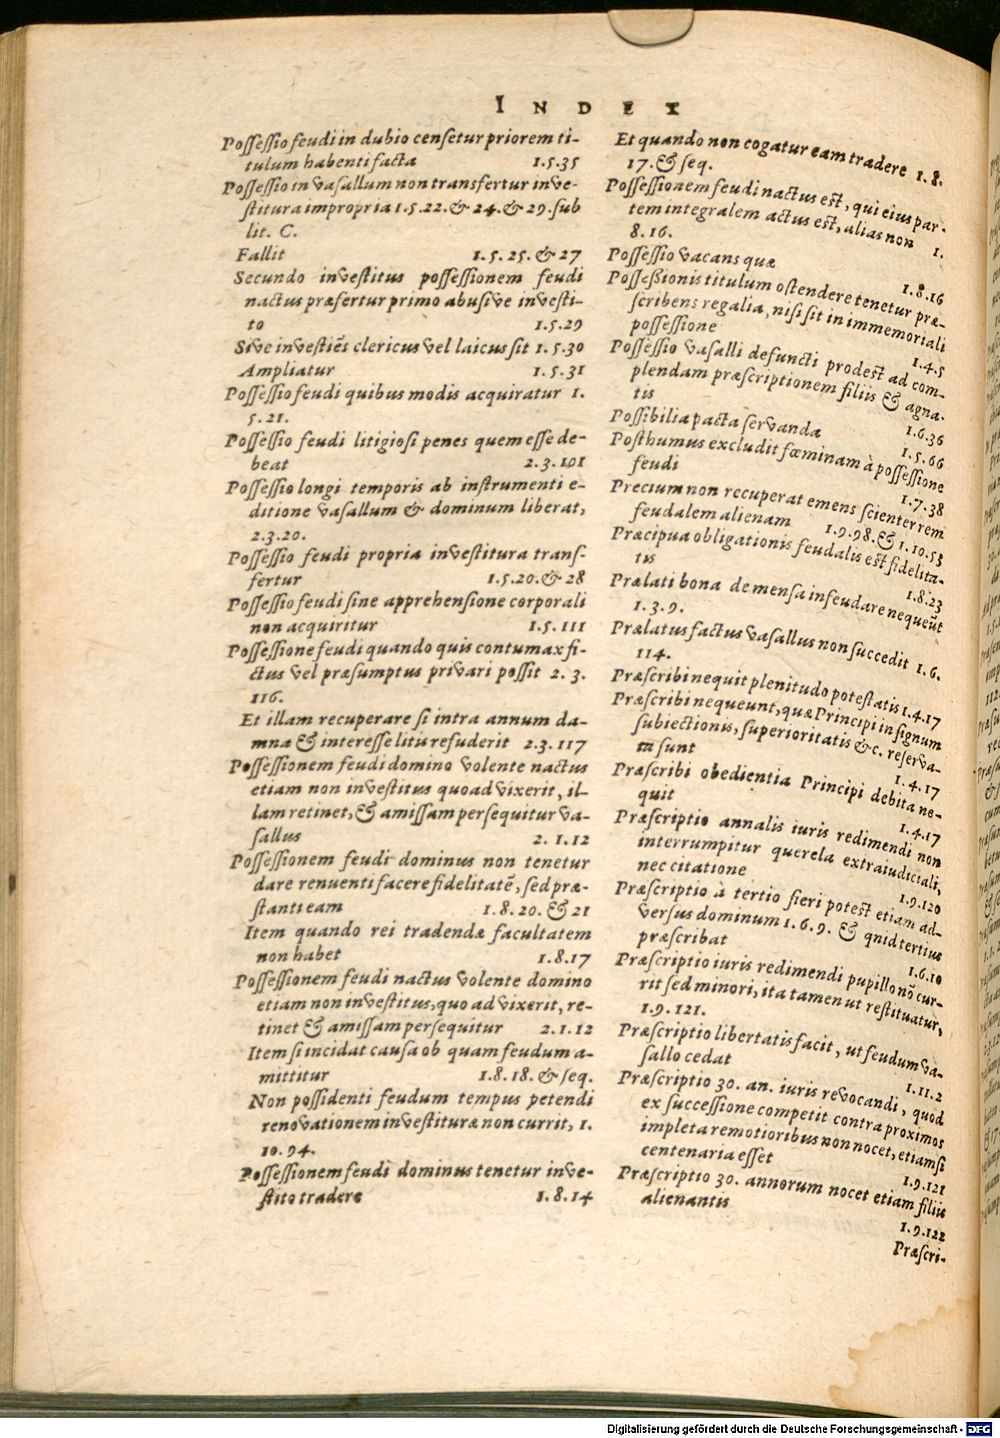 INDEX
Possessio feudi in dubio censetur priorem ti-
tulum habenti facta 1.5.35
Possessio in vasallum non transfertur inve-
stitura impropria 1.5.22. & 24. & 29. sub
lit. C.
Fallit 1.5.25. & 27
Secundo investitus possessionem feudi
nactus præfertur primo abusive investi-
to 1.5.29
Sive investiẽs clericus vel laicus sit 1.5.30
Ampliatur 1.5.31
Possessio feudi quibus modis acquiratur 1.
5.21.
Possessio feudi litigiosi penes quem esse de-
beat 2.3.101
Possessio longi temporis ab instrumenti e-
ditione vasallum & dominum liberat,
2.3.20.
Possessio feudi propria investitura trans-
fertur 1.5.20. & 28
Possessio feudi sine apprehensione corporali
non acquiritur 1.5.111
Possessione feudi quando quis contumax fi-
ctus vel præsumptus privari possit 2.3.
116.
Et illam recuperare si intra annum da-
mna & interesse litis refuderit 2.3.117
Possessionem feudi domino volente nactus
etiam non investitus quoad vixerit, il-
lam retinet, & amissam persequitur va-
sallus 2.1.12
Possessionem feudi dominus non tenetur
dare renuenti facere fidelitatẽ, sed præ-
stanti eam 1.8.20. & 21
Item quando rei tradendæ facultatem
non habet 1.8.17
Possessionem feudi nactus volente domino
etiam non investitus, quo ad vixerit, re-
tinet & amissam persequitur 2.1.12
Item si incidat causa ob quam feudum a-
mittitur 1.8.18. & seq.
Non possidenti feudum tempus petendi
renovationem investituræ non currit, 1.
10.94.
Possessionem feudi dominus tenetur inve-
stito tradere 1.8.14
Et quando non cogatur eam tradere 1.8.
17. & seq.
Possessionem feudi nactus est, qui eius par-
tem integralem actus est, alias non 1.
8.16.
Possessio vacans quæ 1.8.16
Possessionis titulum ostendere tenetur præ-
scribens regalia, nisi sit in immemoriali
possessione 1.4.5
Possessio vasalli defuncti prodest ad com-
plendam præscriptionem filiis & agna-
tis 1.6.36
Possibilia pacta servanda 1.5.66
Posthumus excludit fœminam à possessione
feudi 1.7.38
Precium non recuperat emens scienter rem
feudalem alienam 1.9.98. & 1.10.53
Præcipua obligationis feudalis est fidelita-
tis 1.8.23
Prælati bona de mensa infeudare nequeũt
1.3.9.
Prælatus factus vasallus non succedit 1.6.
114.
Præscribi nequit plenitudo potestatis 1.4.17
Præscribi nequeunt, quæ Principi in signum
subiectionis, superioritatis &c. reserva-
ta sunt 1.4.17
Præscribi obedientia Principi debita ne-
quit 1.4.17
Præscriptio annalis iuris redimendi non
interrumpitur querela extraiudiciali,
nec citatione 1.9.120
Præscriptio à tertio fieri potest etiam ad-
versus dominum 1.6.9. & qnid tertius
præscribat 1.6.10
Præscriptio iuris redimendi pupillo nõ cur-
rit sed minori, ita tamen ut restituatur,
1.9.121.
Præscriptio libertatis facit, ut feudum va-
sallo cedat 1.11.2
Præscriptio 30. an. iuris revocandi, quod
ex successione competit contra proximos
impleta remotioribus non nocet, etiamsi
centenaria esset 1.9.121
Præscriptio 30. annorum nocet etiam filiis
alienantis 1.9.122
Præscri-
Digitalisierung gefördert durch die Deutsche Forschungsgemeinschaft - DFG